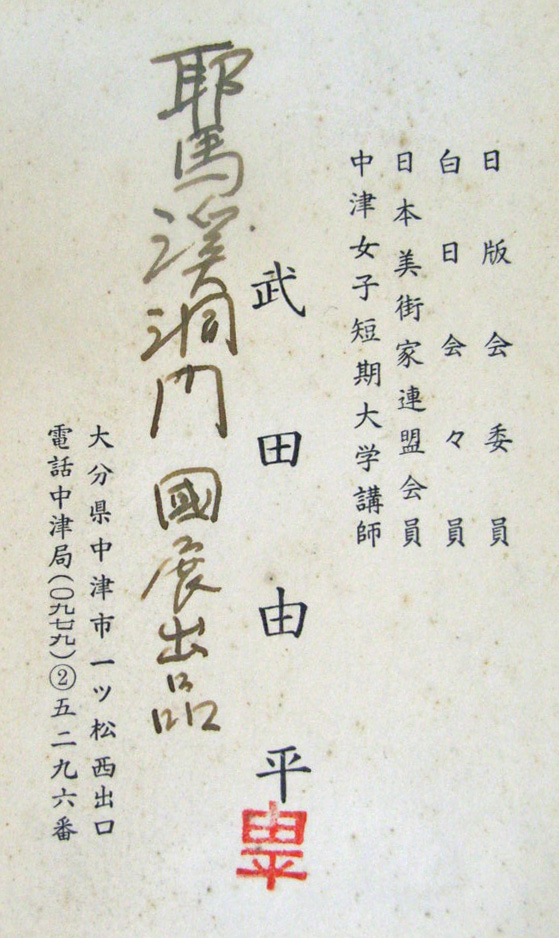 日版会委員
白日会々員
日本美術家連盟会員
中津女子短期大学講師
武田由平
由平
耶馬溪洞門 國展出品
大分県中津市一ツ松西出口
電話中津局(〇九七九)②五二九六番